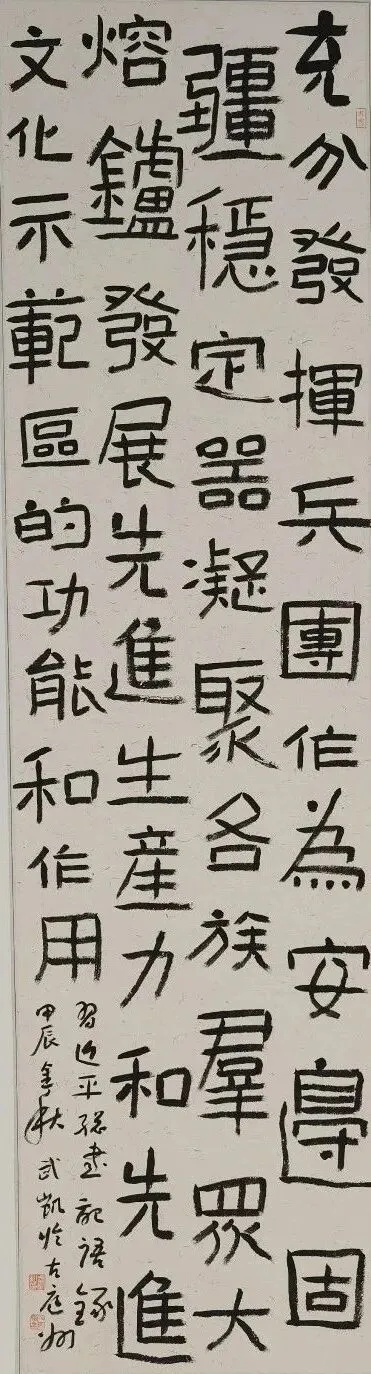 充分發揮兵團作為安邊固
疆穩定器凝聚各族羣眾大
熔鑪發展先進生產力和先進
文化示範區的功能和作用
習近平總書記語錄
甲辰金秋武凱於古庭州